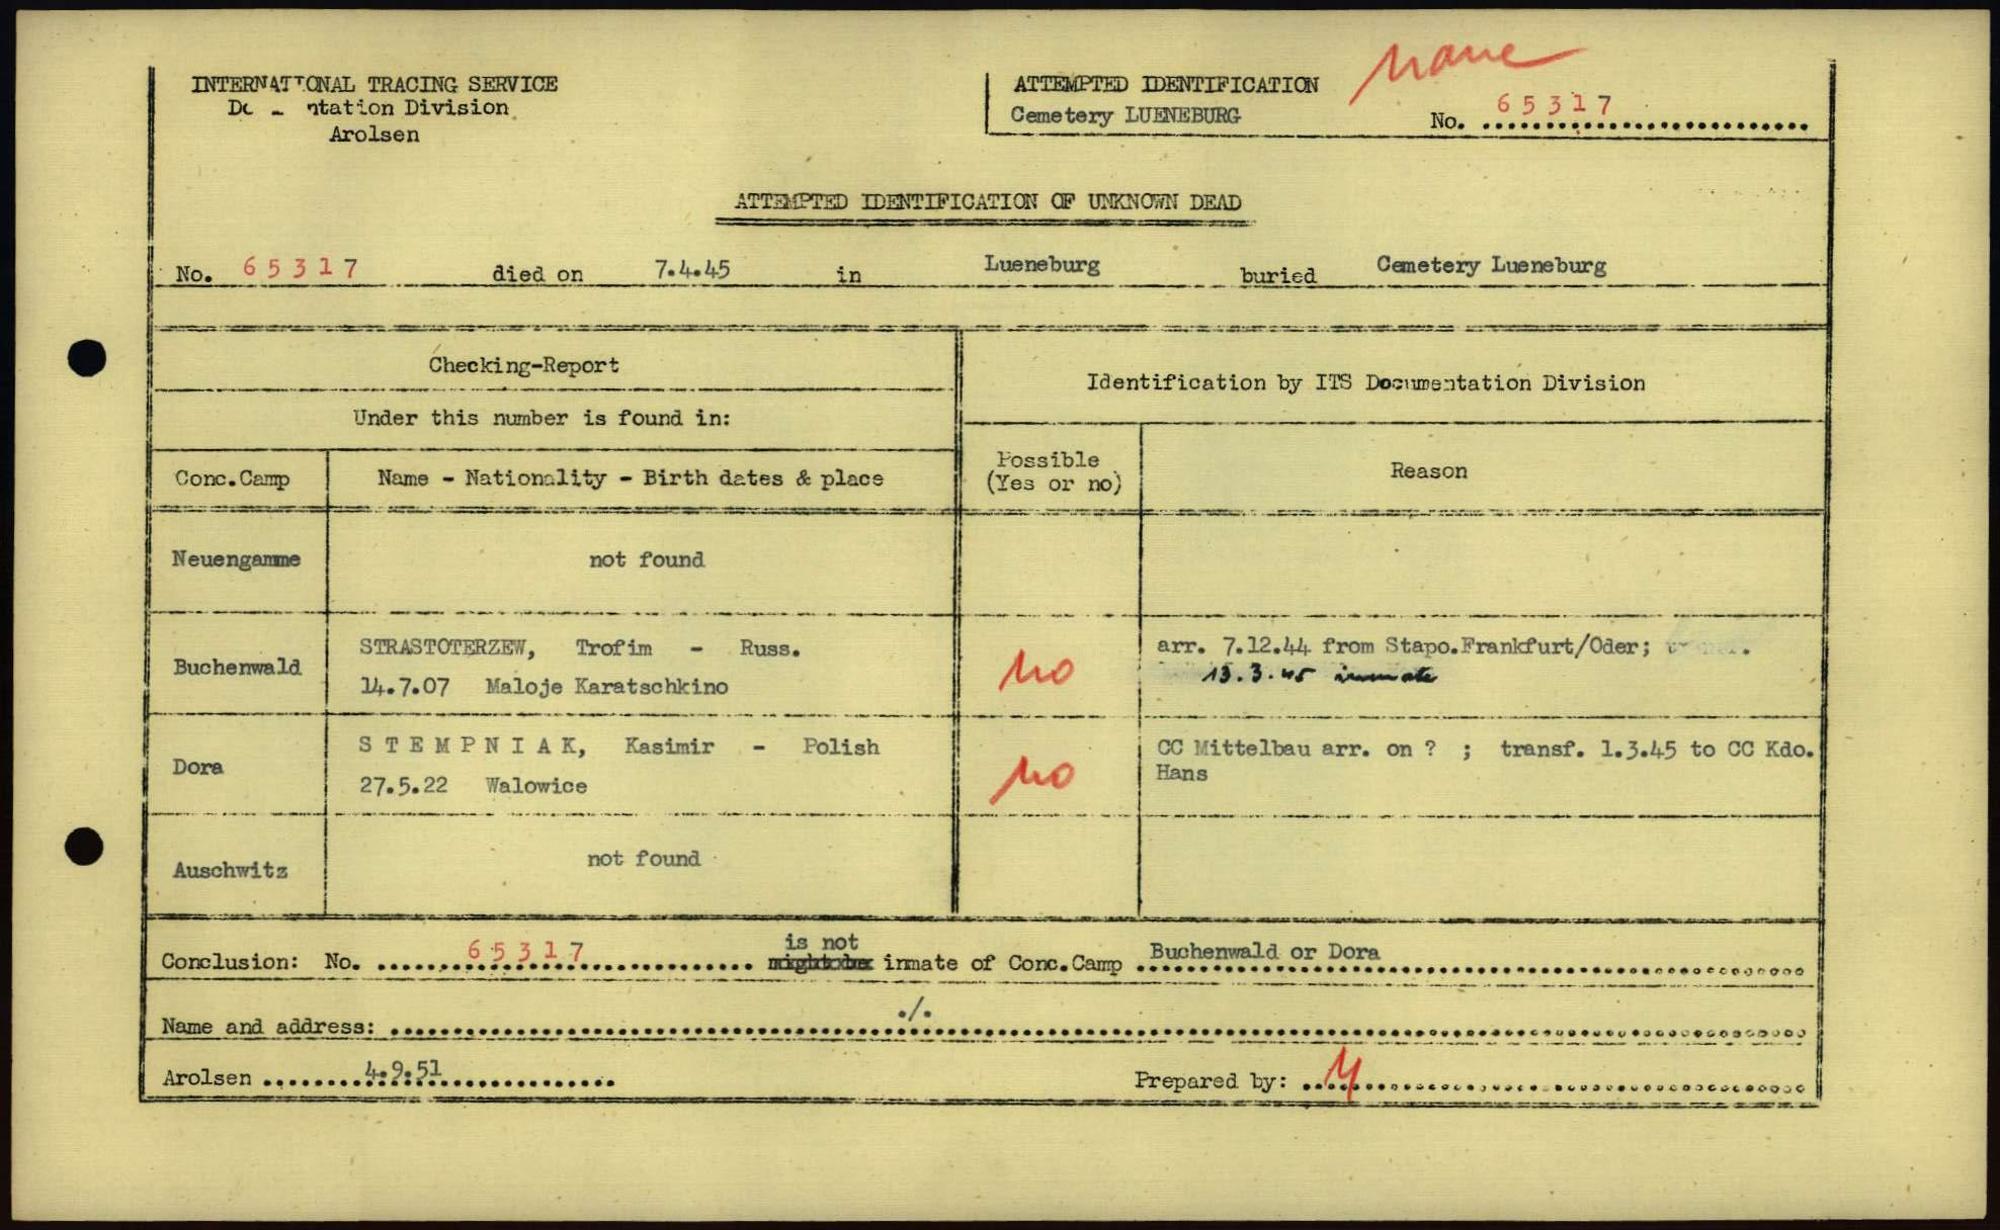 INTERNATIONAL TRACING SERVICE
ntation Division
Arolsen
ATTEMPTED IDENTIFICATION
Cemetery LUENEBURG
No. 65317
ATTEMPTED IDENTIFICATION OF UNKNOWN DEAD
No. 65317 died on 7.4.45 in Lueneburg buried Cemetery Lueneburg
Checking-Report
Identification by ITS Documentation Division
Under this number is found in:
Conc.Camp
Name - Nationality - Birth dates & place
Possible
(Yes or no)
Reason
Neuengamme
not found
Buchenwald
STRASTOTERZEW, Trofim - Russ.
14.7.07 Maloje Karatschkino
no
arr. 7.12.44 from Stapo.Frankfurt/Oder;
13.3.45 inmate
Dora
S T E M P N I A K, Kasimir - Polish
27.5.22 Walowice
no
CC Mittelbau arr. on ? ; transf. 1.3.45 to CC Kdo.
Hans
Auschwitz
not found
Conclusion: No. 65317 is not inmate of Conc.Camp Buchenwald or Dora
Name and address: ./.
Arolsen 4.9.51
Prepared by: